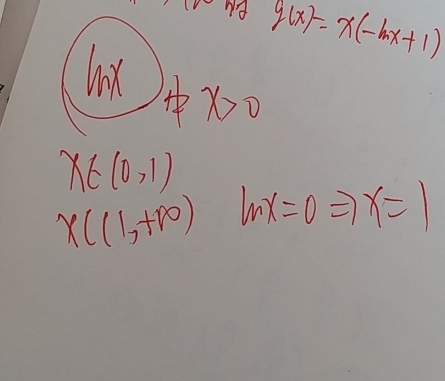 时 g(x)= x(-lnx+1)
lnx 中 x>0
x∈(0,1)
x∈(1,+∞) lnx=0⇒x=1